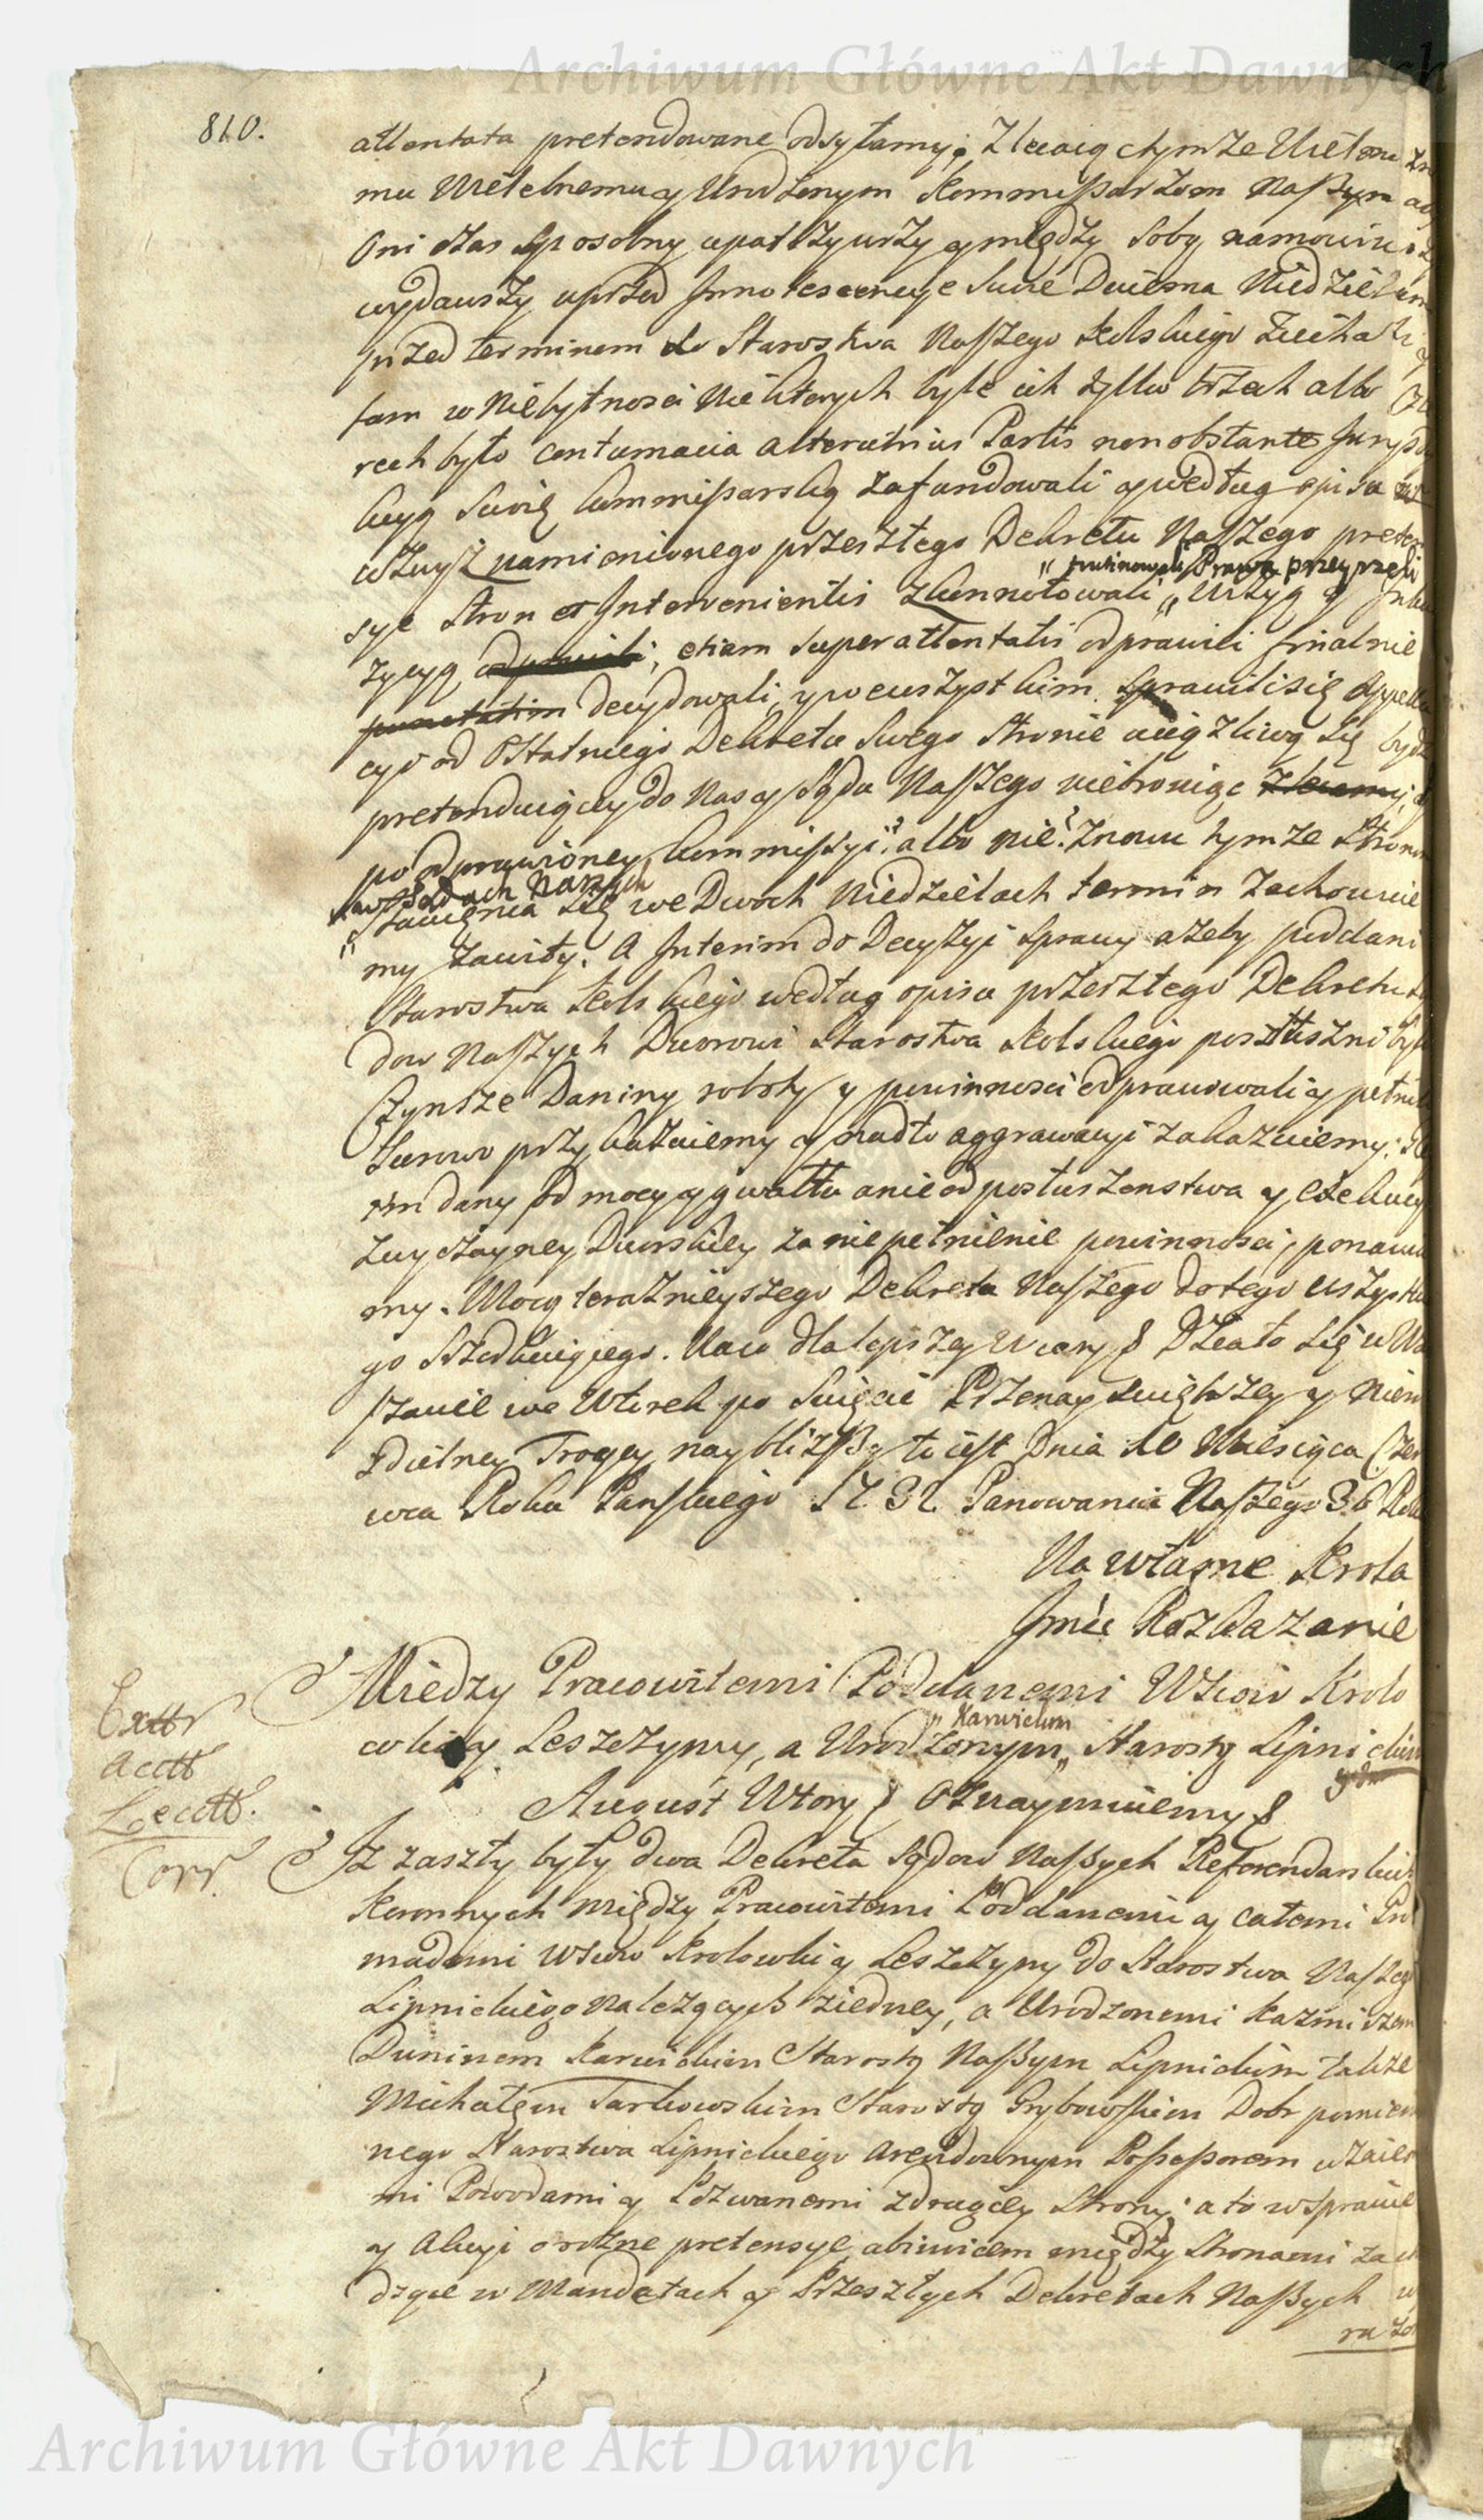 Archiwum Główne Akt Dawnych
810.
attentata pretendowane odsyłamy; Zlecaiąc tymże Wielmo
mu Wielebnemu y Urodzonym Kommissarzom Naszym
Oni czas sposobny upatrzywszy y między sobą namowi
wydawszy uprzod Innotescencye swoie Dwiema Niedzielam
przed terminem do Starostwa Naszego Kolskiego Ziechali
tam w Niebytnosci Niektorych byle ich tylko trzech albo
rech było contumacia alterutrius Partis non obstante Jurysd
kcyą swoię kommissarską zafundowali y według opisu
wzwyż namienionego przeszłego Dekretu Naszego preten
" Prawa przeyrzeli
sye Stron et Intervenientis zkonnotowali „ Wizyą y Inkw
zycyą odprawili, etiam super attentatis odprawili finalnie
punctatim decydowali, y we wszystkim sprawili się Appella
cyi od Ostatniego Dekretu swego stronie uciążliwą się bydz
pretenduiącey do Nas y Sądu Naszego niebroniąc Zlecamy,
po odprawioney kommissyi albo nie znowu tymże Stronom
w Sądach Naszych
" stawienia się we Dwoch Niedzielach termin zachowuie
my zawity. A Interim do Decyzyi sprawy ażeby poddani
Starostwa Kolskiego według opisu przeszłego Dekretu
dow Naszych Dworowi Starostwa Kolskiego posłuszni byli
Czynsze Daniny roboty y powinnosci odprawowali y pełnili
surowo przykazuiemy y nadto aggrawacyi zakazuiemy:
dany od mocy y gwałtu a nie od posłuszenstwa y exekucy
zwyczayney Dworskiey za nie pełnienie powinnosci, ponawia
my. Mocą teraznieyszego Dekretu Naszego do tego wszystkie
go sciągaiącego. Na co dla lepszey wiary § Działo się w Wa
rszawie we Wtorek po Swięcie Przenayswiętszey y Nieroz
dzielney Troycy naybliższy to iest Dnia 10 Miesiąca Czer
wca Roku Panskiego 1732. Panowania Naszego 36 Roku
Na własne Krola
Jmći Rozkazanie
Między Pracowitemi Poddanemi Wsiow Krolo
„ Karwickim
wki y Leszczyny, a Urodzonym „ Starostą Lipnickim
August Wtory § Oznaymuiemy §
Extr
acttt
Lecttt.
Corr.
Iż zaszły były dwa Dekreta Sądow Naszych Referendarskich
Koronnych między Pracowitemi Poddanemi y całemi Gro
madami wsiow Krolowki y Leszczyny do Starostwa Naszego
Lipnickiego należących ziedney, a Urodzonemi Kazmirzem
Duninem Karwickim Starostą Naszym Lipnickim także
Michałem Tarkowskim Starostą Grybowskim Dobr pomien
nego Starostwa Lipnickiego Arendownym Possessorem wzaiem
mi Powodami y Pozwanemi zdrugiey Strony; a to w sprawie
y Akcyi o rożne pretensye, abinvicem między Stronami zacho
dzące w Mandatach y Przeszłych Dekretach Naszych
Archiwum Główne Akt Dawnych